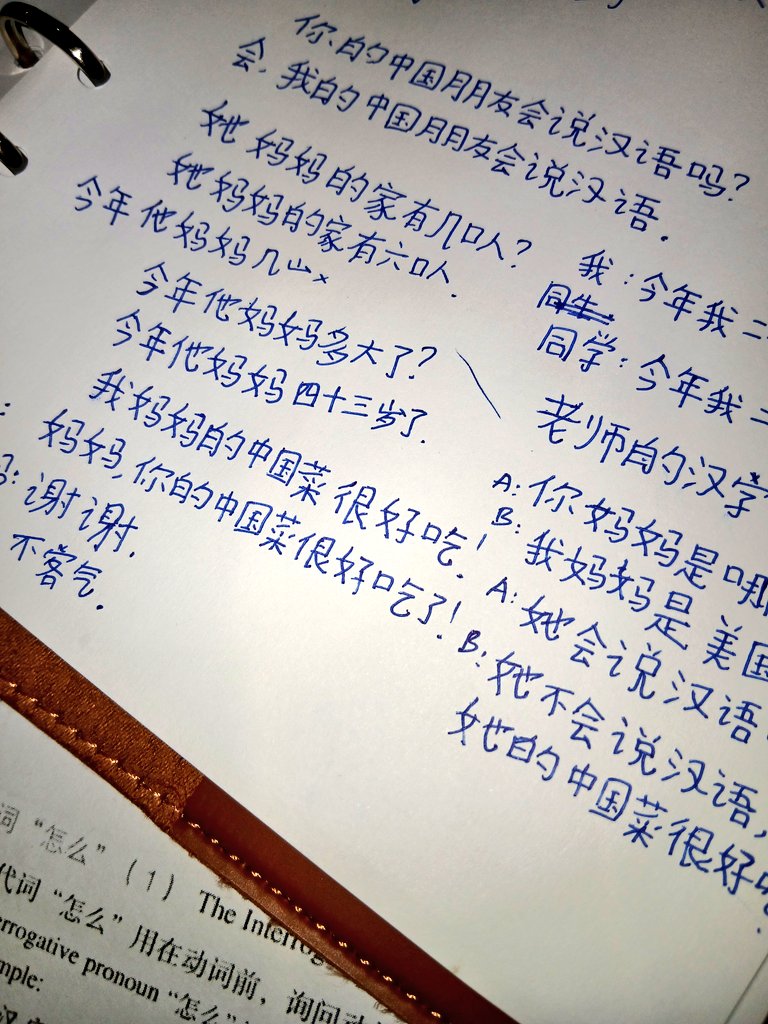 你的中国朋友会说汉语吗?
会,我的中国朋友会说汉语.
她妈妈的家有几口人?
她妈妈的家有六口人.
今年他妈妈几
今年他妈妈多大了?
今年他妈妈四十三岁了.
我妈妈的中国菜很好吃!
妈妈,你的中国菜很好吃了!
谢谢.
不客气.
我:今年我二
同学:今年我二
老师的汉字
A:你妈妈是哪
B:我妈妈是美国
A:她会说汉语
B:她不会说汉语,
她的中国菜很好吃
词“怎么”(1) The Interrog
代词“怎么”用在动词前,询问动
errogative pronoun “怎么”
mple: